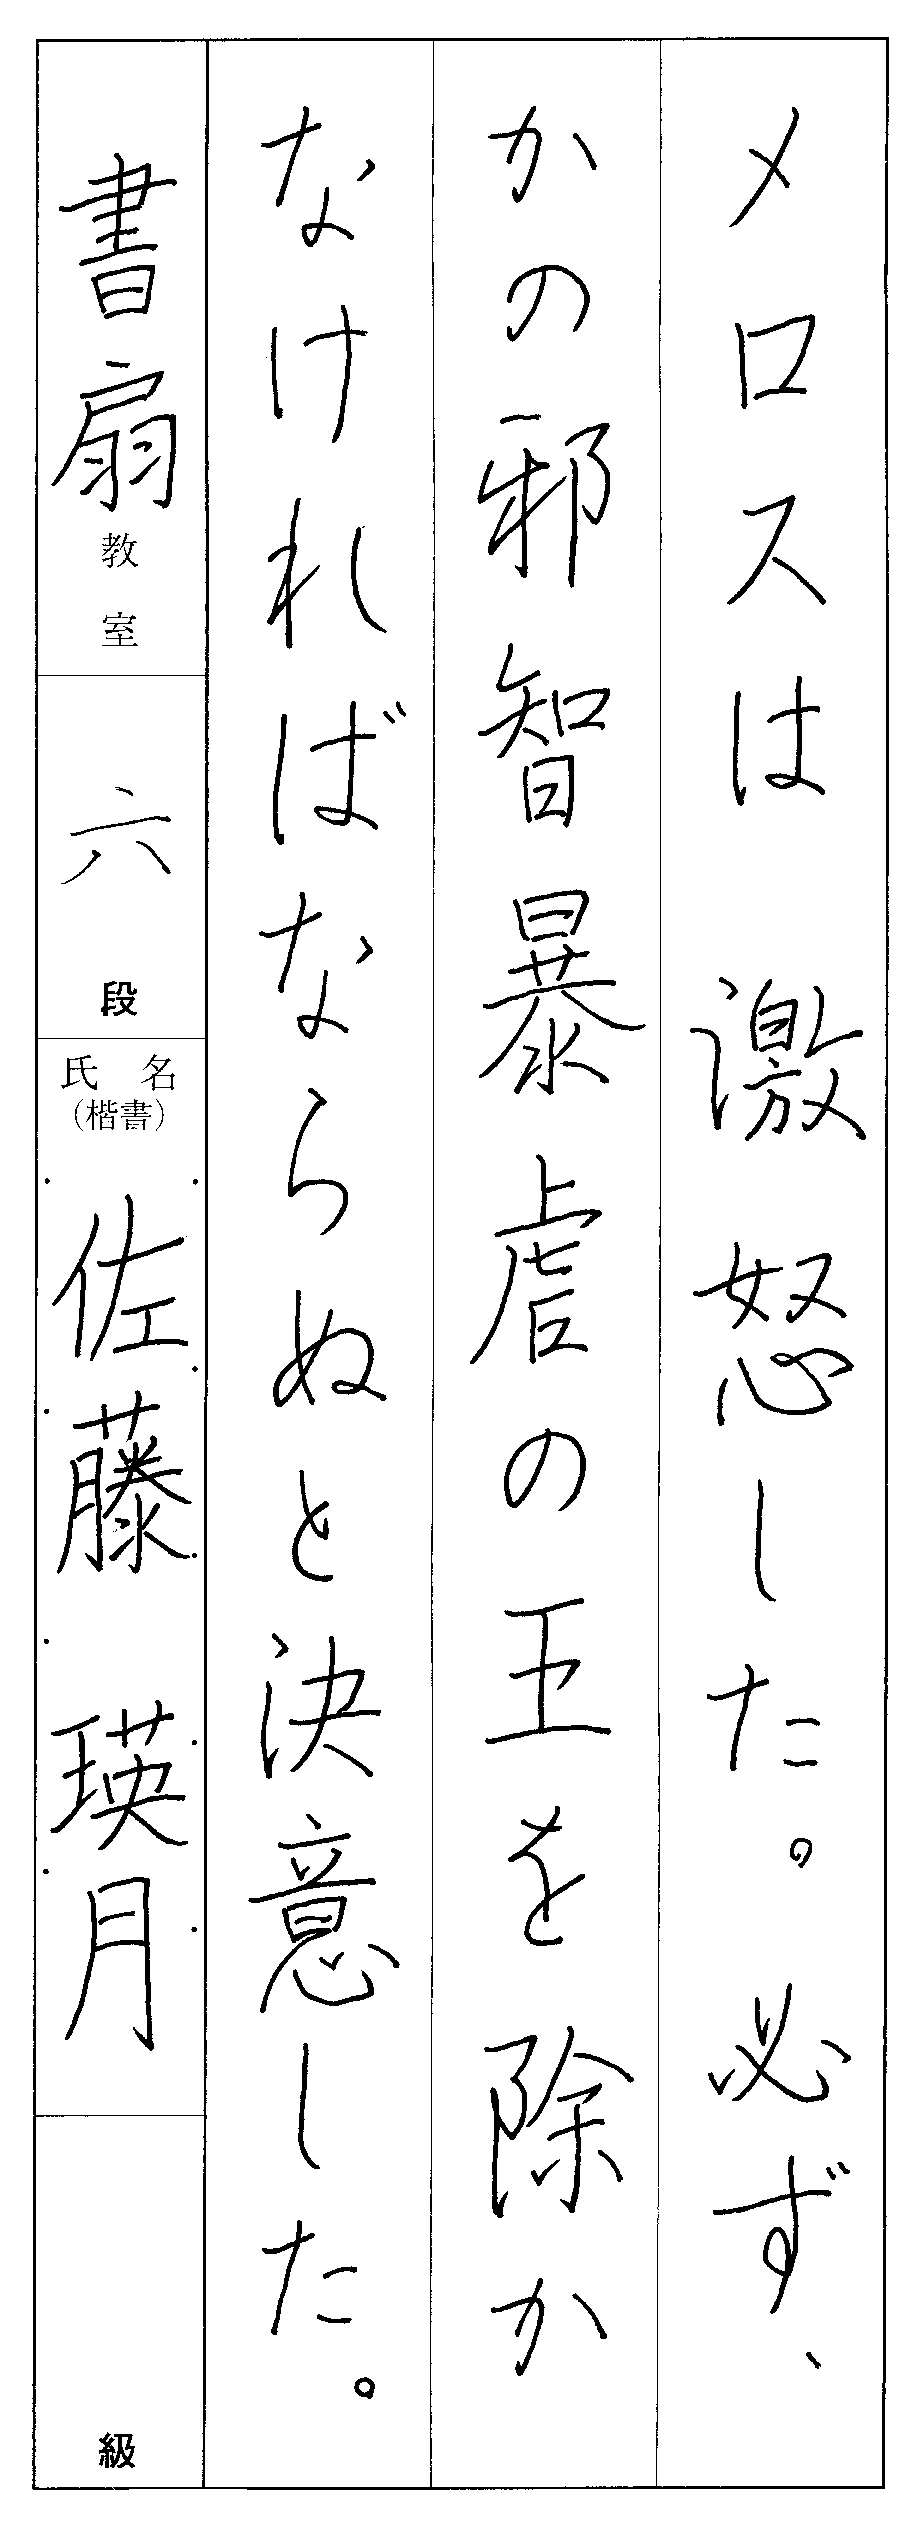 メロスは激怒した。必ず、
かの邪智暴虐の王を除か
なければならぬと決意した。
書扇教室
六段
氏名
(楷書)
佐藤瑛月
級